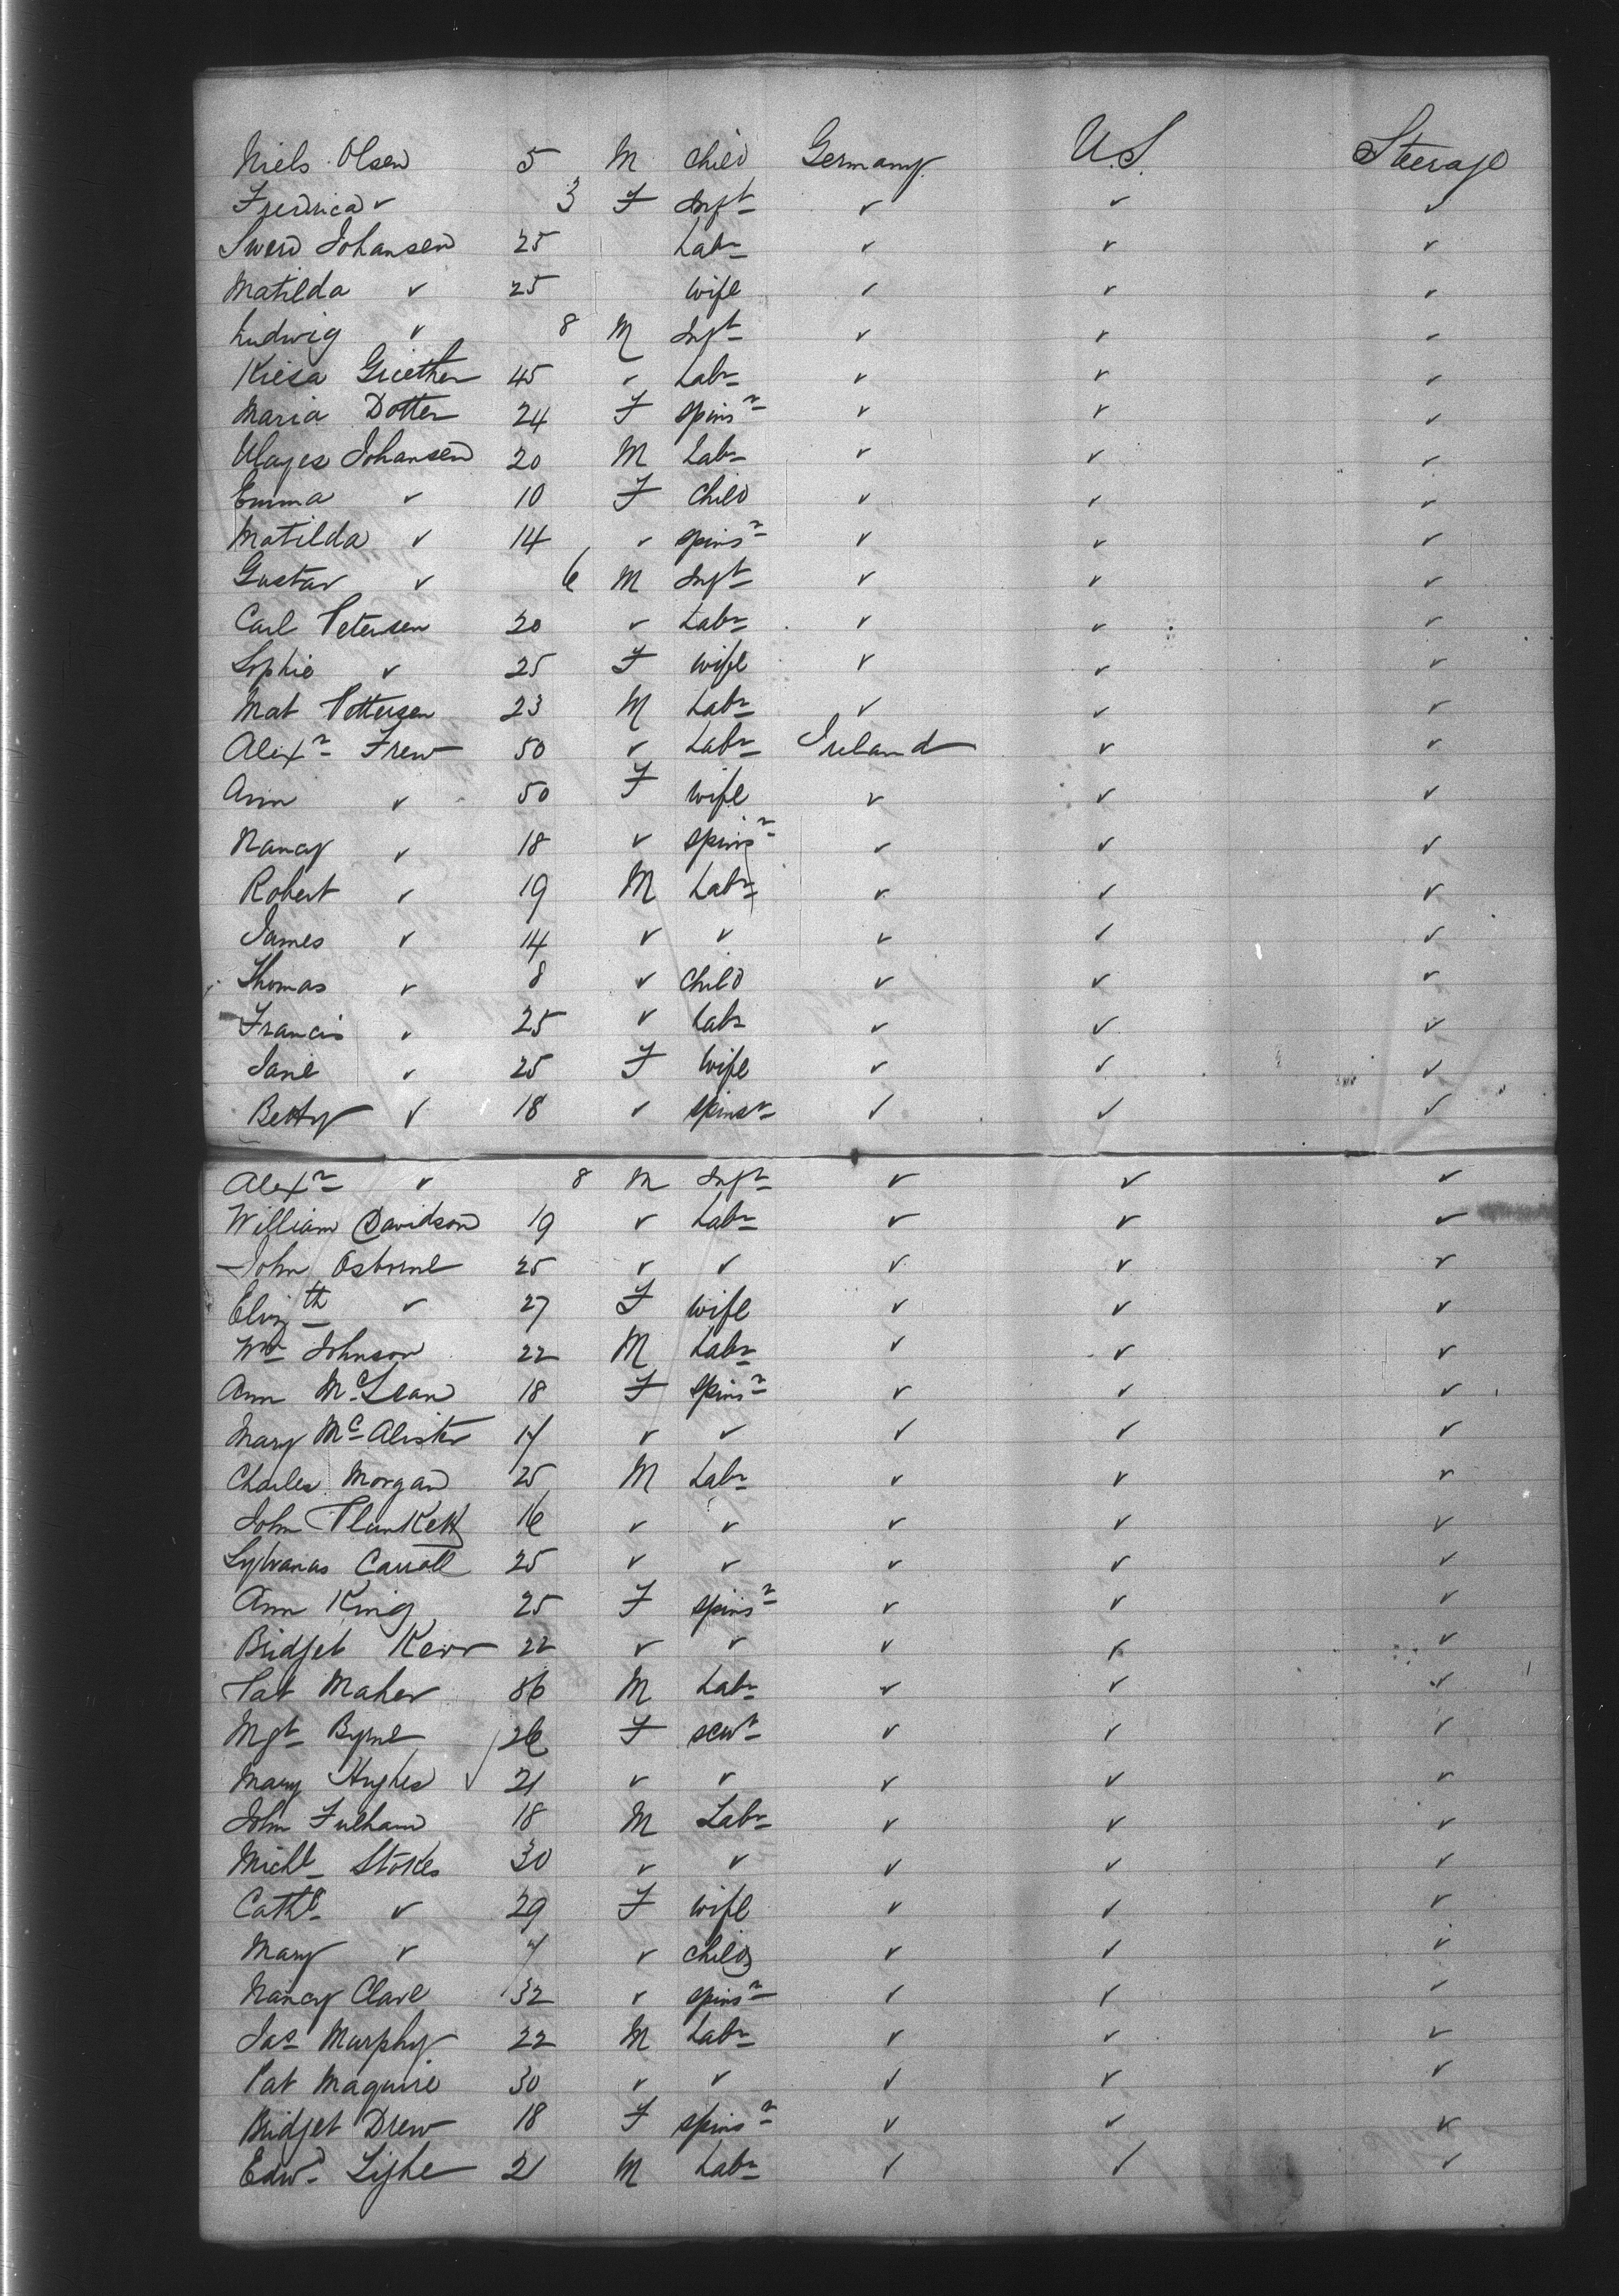 Niels Olsen 5 M Child Germany U.S. Steerage
Fredrica ✓ 3 F Inft ✓ ✓ ✓
Swen Johansen 25 Labr ✓ ✓ ✓
Matilda ✓ 25 wife ✓ ✓ ✓
Ludwig ✓ 8 M Inft ✓ ✓ ✓
Kiesa 45 ✓ Labr ✓ ✓ ✓
Maria Dotter 24 F spinsr ✓ ✓ ✓
Johansen 20 M Labr ✓ ✓ ✓
Emma ✓ 10 F Child ✓ ✓ ✓
Matilda ✓ 14 ✓ spinsr ✓ ✓ ✓
Gustav ✓ 6 M Inft ✓ ✓ ✓
Carl Petersen 20 ✓ Labr ✓ ✓ ✓
Sophie ✓ 25 F wife ✓ ✓ ✓
Mat Pettersen 23 M Labr ✓ ✓ ✓
Alexr Frew 50 ✓ Labr Ireland ✓ ✓
Ann ✓ 50 F wife ✓ ✓ ✓
Nancy ✓ 18 ✓ spinsr ✓ ✓ ✓
Robert ✓ 19 M Labr ✓ ✓ ✓
James ✓ 14 ✓ ✓ ✓ ✓ ✓
Thomas ✓ 8 ✓ child ✓ ✓ ✓
Francis ✓ 25 ✓ Labr ✓ ✓ ✓
Jane ✓ 25 F wife ✓ ✓ ✓
Betty ✓ 18 ✓ spinsr ✓ ✓ ✓
Alexr ✓ 8 M Inft ✓ ✓ ✓
William Davidson 19 ✓ Labr ✓ ✓ ✓
John Osborne 25 ✓ ✓ ✓ ✓ ✓
Elizth ✓ 27 F wife ✓ ✓ ✓
Wm Johnson 22 M Labr ✓ ✓ ✓
Ann McLean 18 F spinsr ✓ ✓ ✓
Mary McAlister 17 ✓ ✓ ✓ ✓ ✓
Charles Morgan 25 M Labr ✓ ✓ ✓
John Plunkett 16 ✓ ✓ ✓ ✓ ✓
Sylvanas Carroll 25 ✓ ✓ ✓ ✓ ✓
Ann King 25 F spinsr ✓ ✓ ✓
Bridget Kerr 22 ✓ ✓ ✓ ✓ ✓
Pat Maher M Labr ✓ ✓ ✓
Mgt Byrne 26 F servt ✓ ✓ ✓
Mary Hughes ✓ 21 ✓ ✓ ✓ ✓ ✓
John Fulham 18 M Labr ✓ ✓ ✓
Michl Stokes 30 ✓ ✓ ✓ ✓ ✓
Cathe ✓ 29 F wife ✓ ✓ ✓
Mary ✓ 7 ✓ child ✓ ✓ ✓
Nancy Clare 32 ✓ spinsr ✓ ✓ ✓
Jas Murphy 22 M Labr ✓ ✓ ✓
Pat Maguire 30 ✓ ✓ ✓ ✓ ✓
Bridget Drew 18 F spinsr ✓ ✓ ✓
Edwd Lyhe 21 M Labr ✓ ✓ ✓